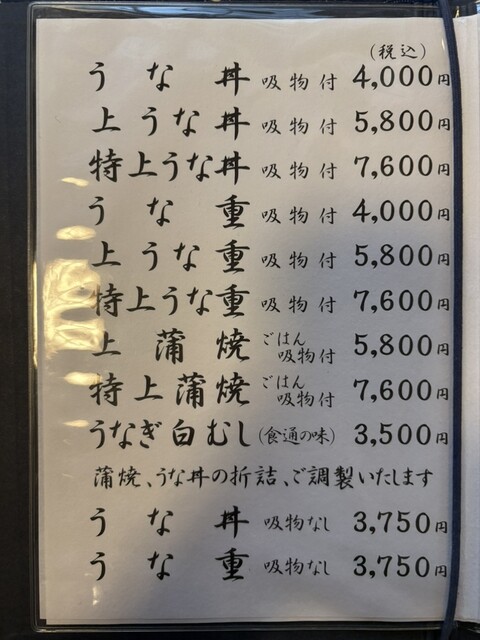 (税込)
うな丼 吸物付 4,000円
上うな丼 吸物付 5,800円
特上うな丼 吸物付 7,600円
うな重 吸物付 4,000円
上うな重 吸物付 5,800円
特上うな重 吸物付 7,600円
上蒲焼 ごはん吸物付 5,800円
特上蒲焼 ごはん吸物付 7,600円
うなぎ白むし(食通の味) 3,500円
蒲焼、うな丼の折詰、ご調製いたします
うな丼 吸物なし 3,750円
うな重 吸物なし 3,750円